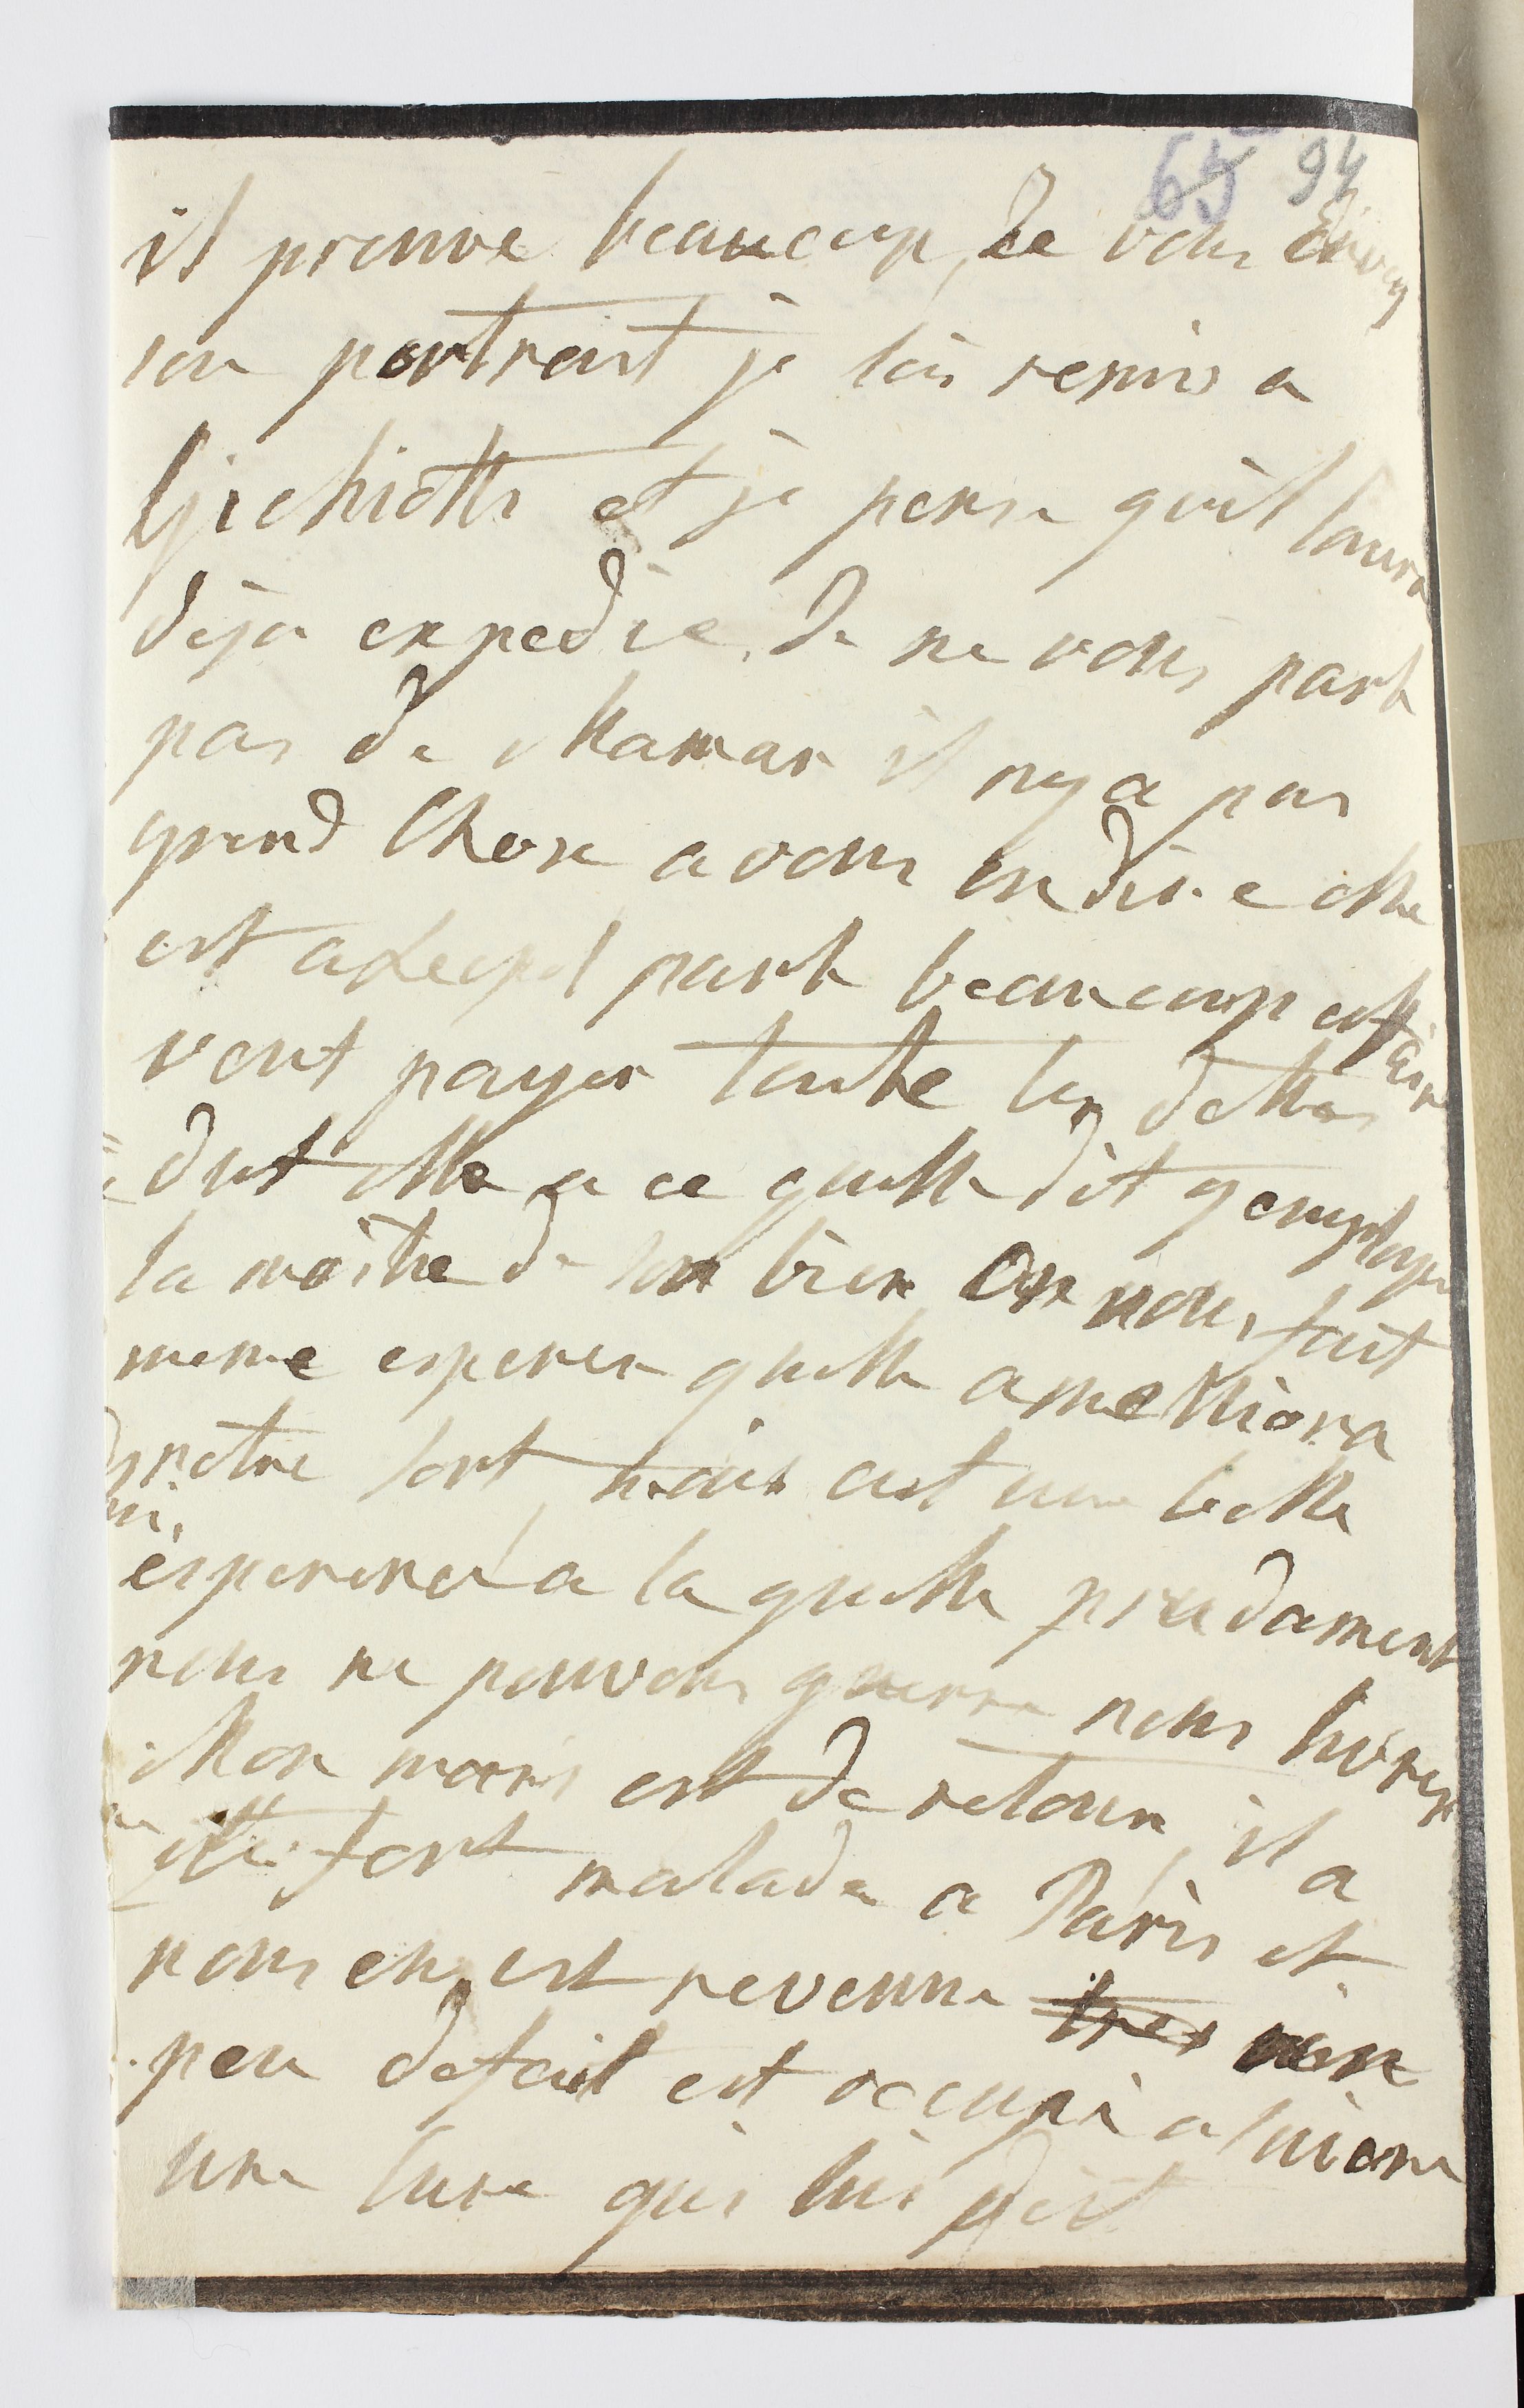 65 94
il prouve beaucoup, de vous envoy
son portrait je lai remis a
et je pense quil laura
deja expedie. Je ne vous parle
pas de Maman il ny a pas
grand Chose a vous en dire elle
est a parle beaucoup affaire
veut payer toute les dettes
dut elle a ce quelle dit y employer
la moitie de son bien On nous fait
meme esperer quelle amelliora
notre sort mais cest une belle
esperence a la quelle prudament
nous ne pouvons guerre nous livrer
Mon mari est de retour, il a
ette fort malade a Paris et
nous en est revenu tres un
peu defait est occupe a suivre
une cure qui lui fait